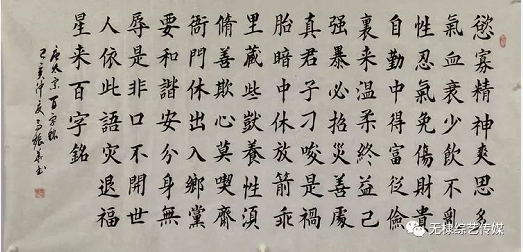 慾寡精神爽思多
氣血衰少飲不亂
性忍氣免傷財貴
自勤中得富從儉
裏来温柔終益己
强暴必招災善處
真君子刁唆是禍
胎暗中休放箭乖
里藏些獃養性湏
脩善欺心莫喫齋
衙門休出入鄉黨
要和諧安分身無
辱是非口不開世
人依此語災退福
星来百字銘
唐太宗百字銘
己亥仲夏
无棣综艺传媒